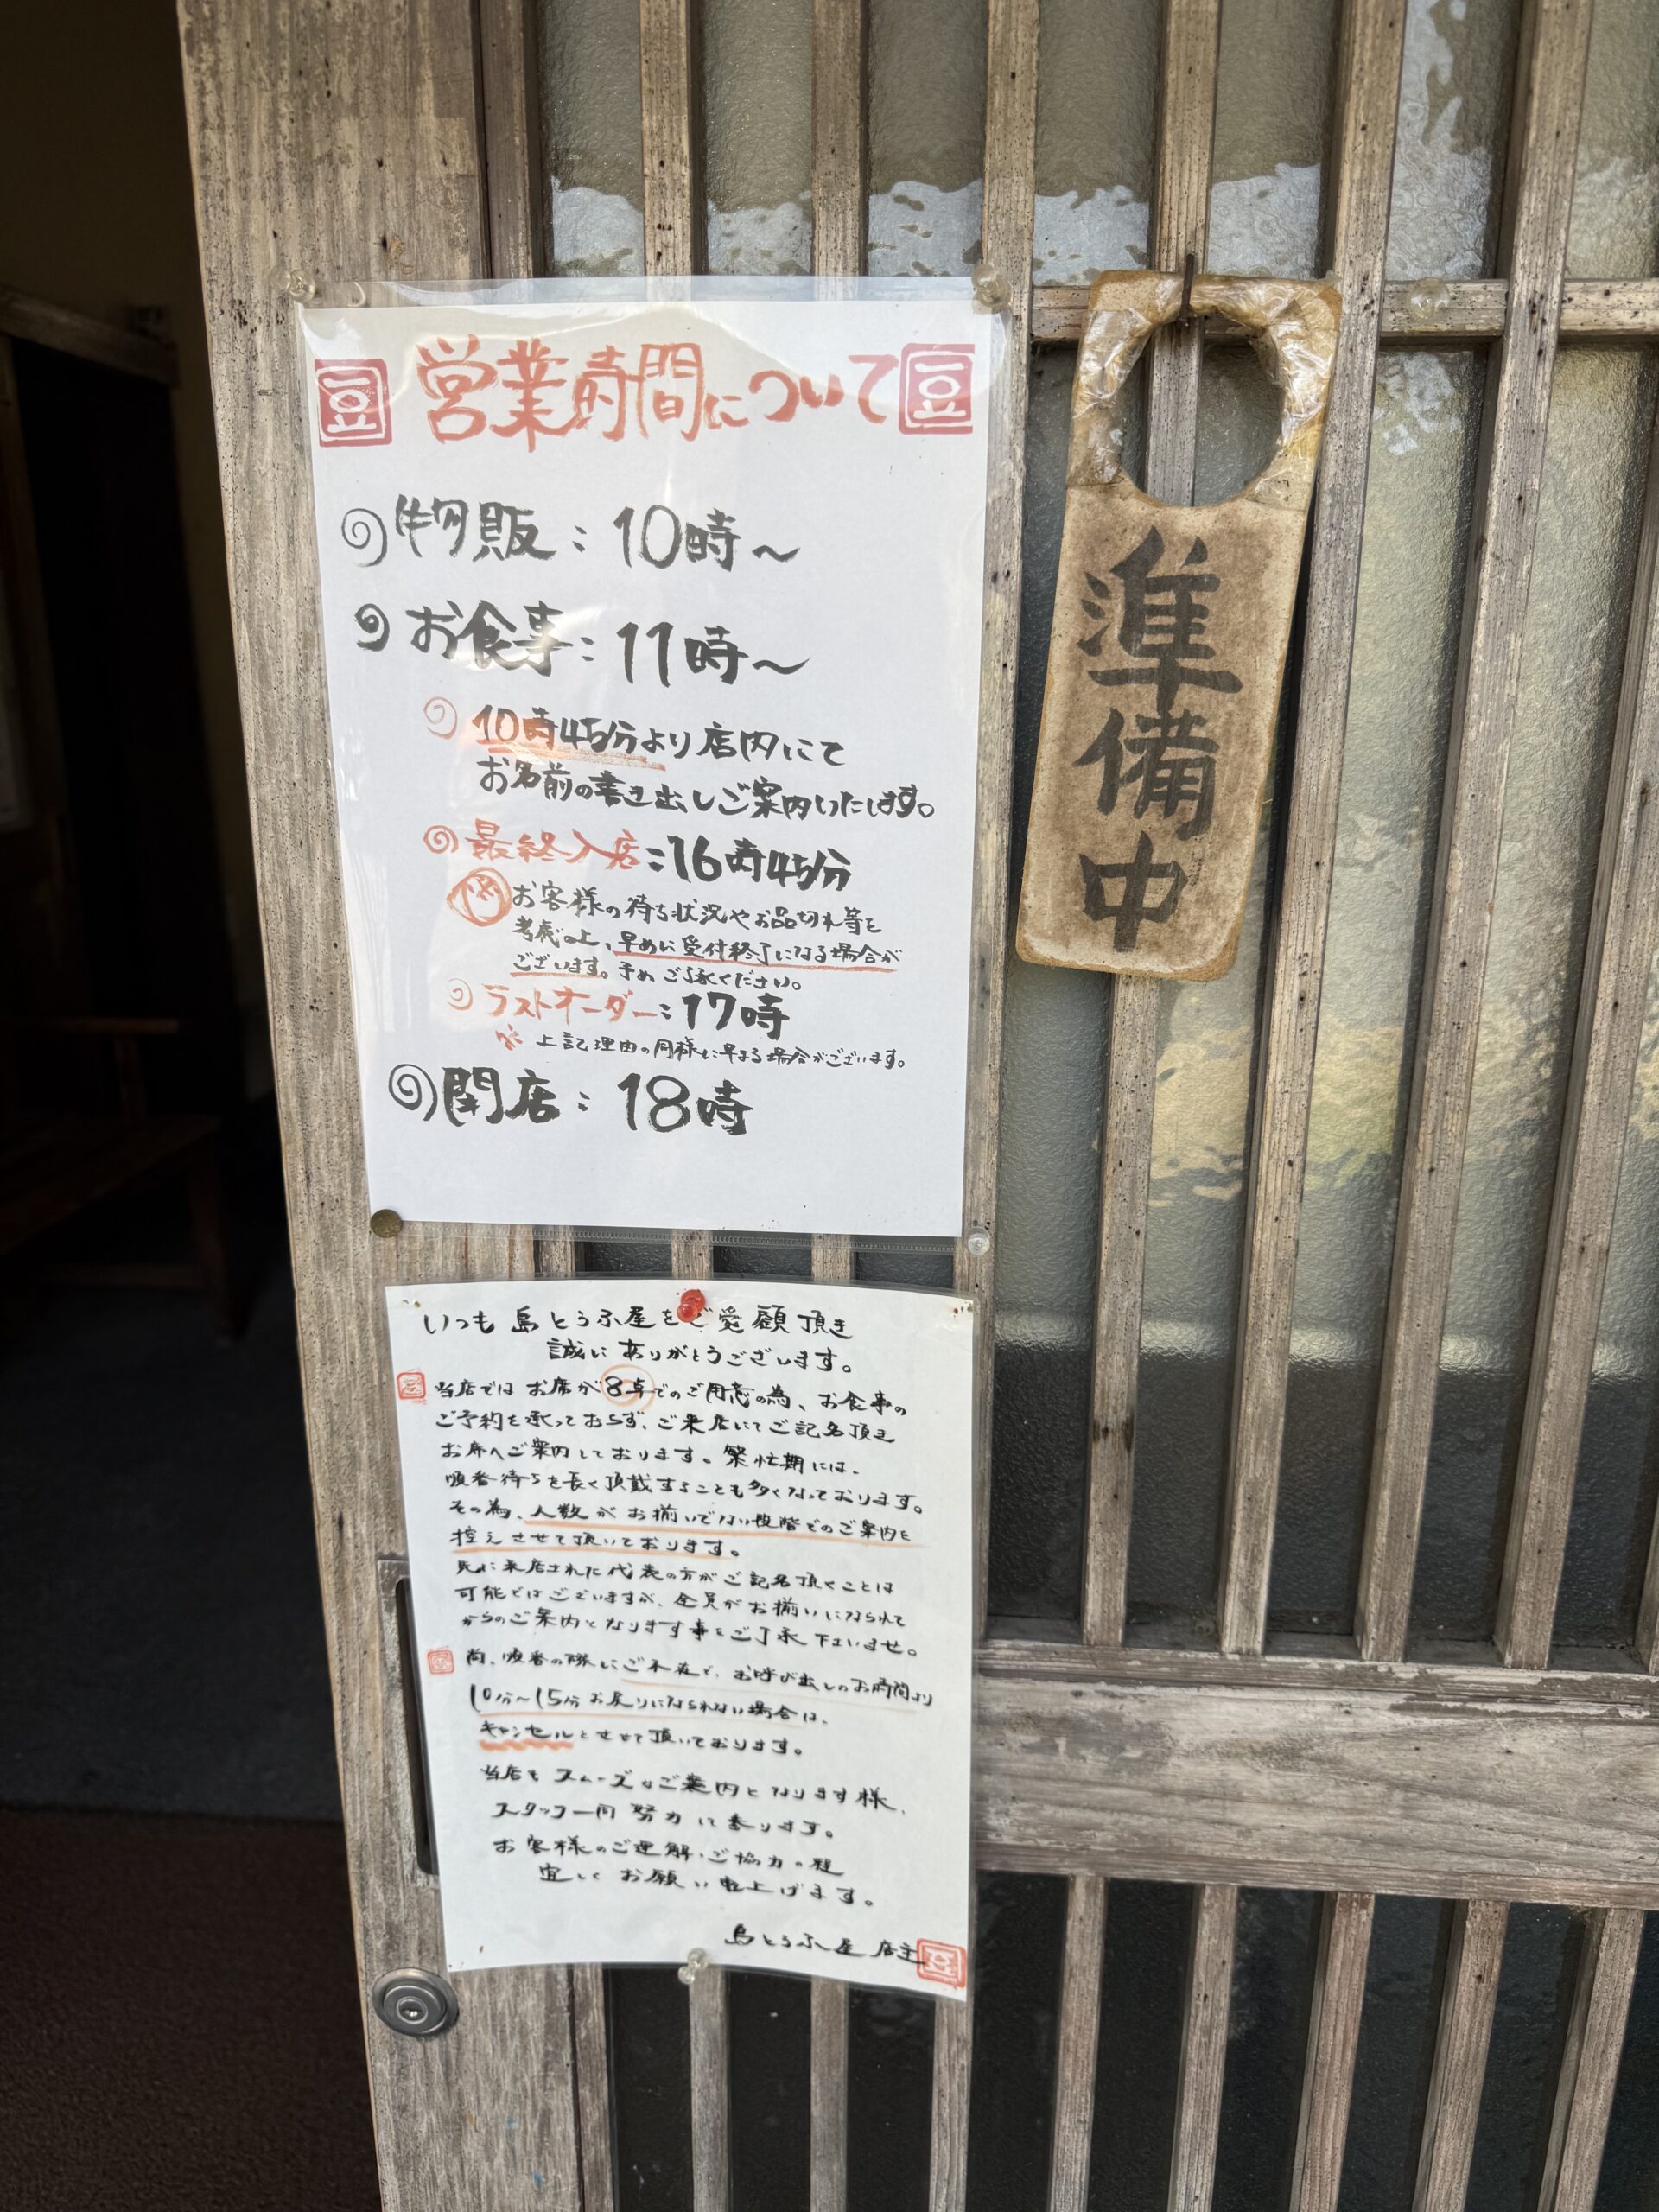 豆 営業時間について 豆
物販：10時～
お食事：11時～
10時45分より店内にて
お名前の書き出しご案内いたします。
最終入店：16時45分
※お客様の待ち状況やお品切れ等を
考慮の上、早めに受付終了になる場合が
ございます。予めご了承ください。
ラストオーダー：17時
※上記理由の同様に早まる場合がございます。
閉店：18時
準備中
いつも島とうふ屋をご愛顧頂き
誠にありがとうございます。
当店ではお席が8卓でのご用意の為、お食事の
ご予約を承っておらず、ご来店にてご記名頂き
お席へご案内しております。繁忙期には、
順番待ちを長く頂戴することも多くなっております。
その為、人数がお揃いでない段階でのご案内を
控えさせて頂いております。
先に来店された代表の方がご記名頂くことは
可能ではございますが、全員がお揃いになられて
からのご案内となります事をご了承下さいませ。
尚、順番の際にご不在で、お呼び出しのお時間より
10分～15分お戻りになられない場合は、
キャンセルとさせて頂いております。
当店もスムーズなご案内となります様、
スタッフ一同努力して参ります。
お客様のご理解・ご協力の程
宜しくお願い申し上げます。
島とうふ屋 店主 豆